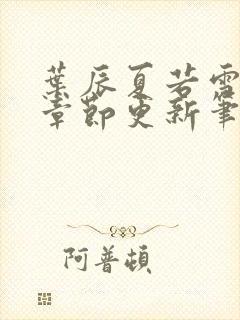 葉辰夏若雪
章節更新筆
阿普頓